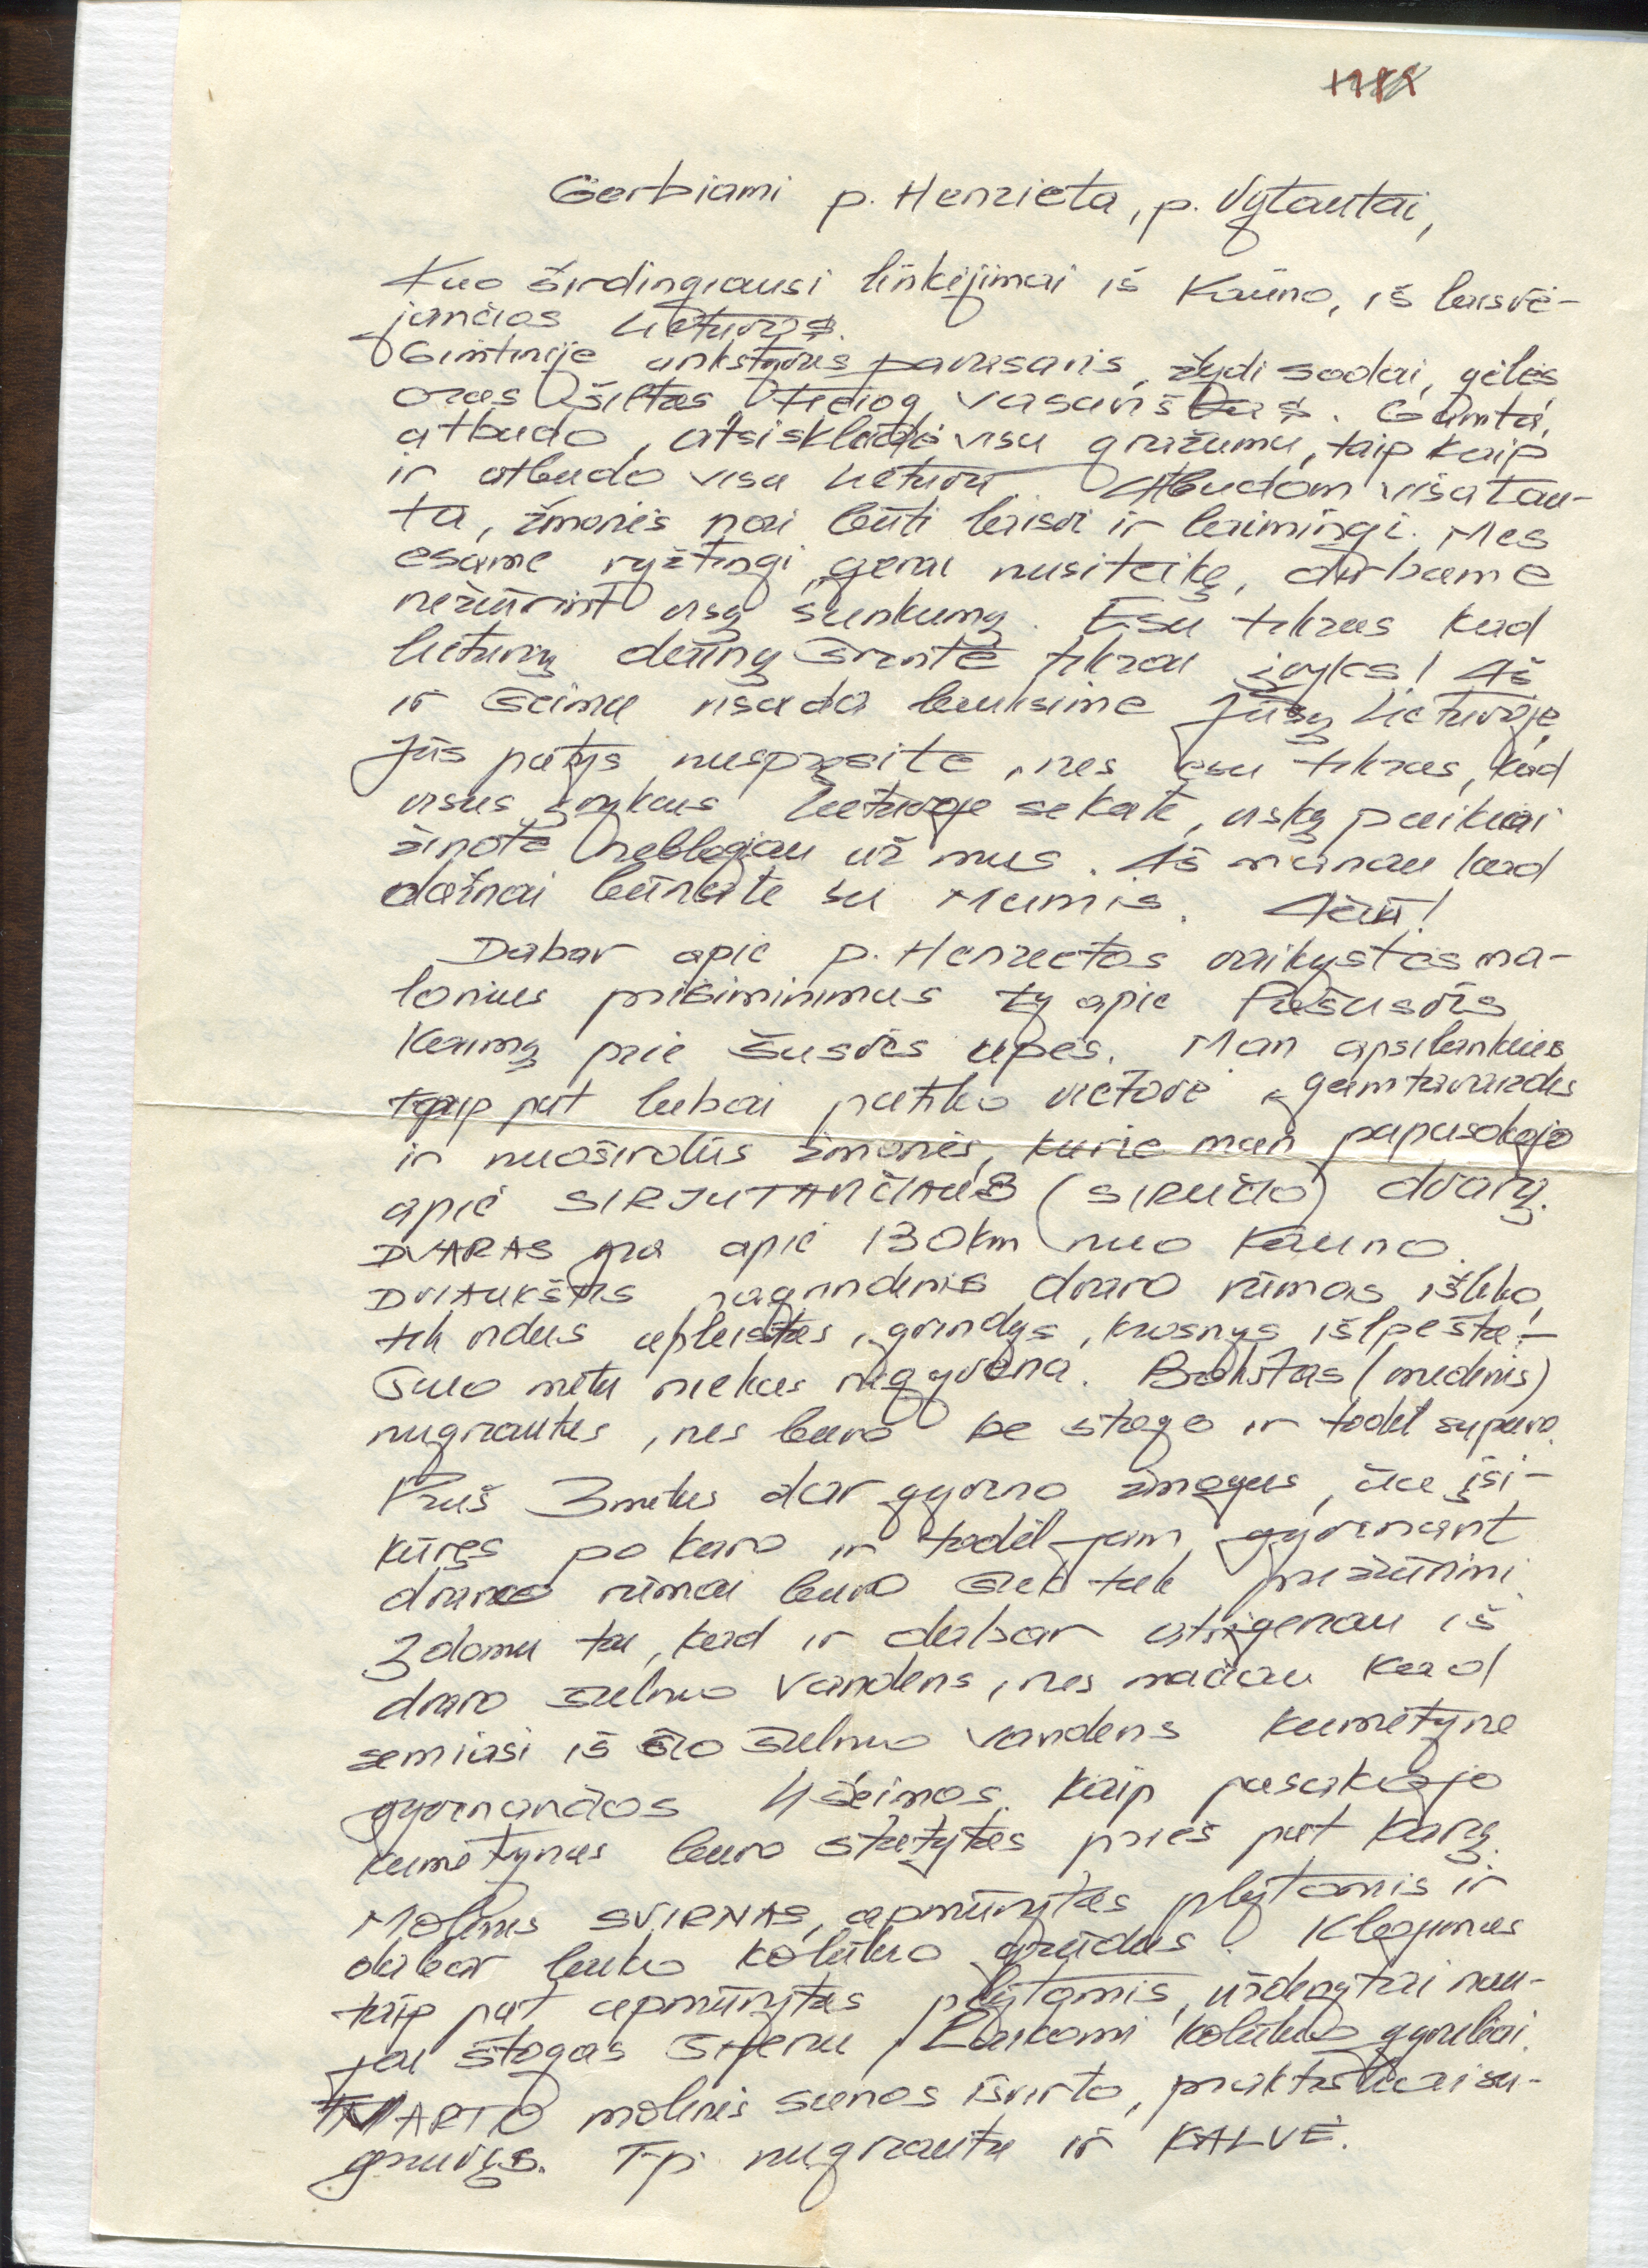 Gerbiami p. Henrieta, p. Vytautai,
Kuo širdingiausi linkėjimai iš Kauno, iš laisvė-
jančios Lietuvos.
Gimtinėje ankstyvas pavasaris, žydi sodai, gėlės,
oras šiltas, tiesiog vasariškas. Gamta
atbudo, atsiskleidė visu gražumu, taip kaip
ir atbudo visa Lietuva. Atbudom visa tau-
ta, žmonės nori būti laisvi ir laimingi. Mes
esame ryžtingi, gerai nusiteikę, dirbame
nežiūrint visų sunkumų. Esu tikras kad
lietuvių dainų šventė tikrai įvyks! Aš
ir šeima visada lauksime Jūsų Lietuvoje,
Jūs patys nuspręsite, nes esu tikras, kad
visus įvykius Lietuvoje sekate, viską puikiai
žinote neblogiau už mus. Aš manau kad
dažnai būnate su Mumis. Ačiū!
Dabar apie p. Henrietos vaikystės ma-
lonius prisiminimus ty apie Pašušvis
kaimą prie Šušvės upės. Man apsilankius
taip pat labai patiko vietovė, gamtavaizdis
ir nuoširdūs žmonės, kurie man papasakojo
apie SIRJUTAVIČIAUS (SIRUČIO) dvarą.
DVARAS yra apie 130km nuo Kauno.
DVIAUKŠTIS pagrindinis dvaro rūmas išliko,
tik vidus apleistas, grindys, krosnys išlpešta! –
Šiuo metu niekas negyvena. Bokštas (medinis)
nugriautas, nes buvo be stogo ir todėl supuvo.
Prieš 3 metus dar gyveno žmogus, čia įsi-
kūręs po karo ir todėl jam gyvenant
dvaro rūmai buvo šiek tiek prižiūrimi
Įdomu tai, kad ir dabar atsigeriau iš
dvaro šulinio vandens, nes mačiau kad
semiasi iš šio šulinio vandens kumetyne
gyvenančios 4 šeimos. Kaip pasakojo
kumetynas buvo statytas prieš pat karą.
Molinis SVIRNAS, apmūrytas plytomis ir
dabar lauko kolūkio grūdus. Klojimas
taip pat apmūrytas plytomis, uždengtai nau-
jai stogas šiferiu, Laikomi kolūkio gyvuliai.
TVARTO molinės sienos išvirto, praktiškai su-
griuvęs. T.p. nugriauta ir KALVĖ.